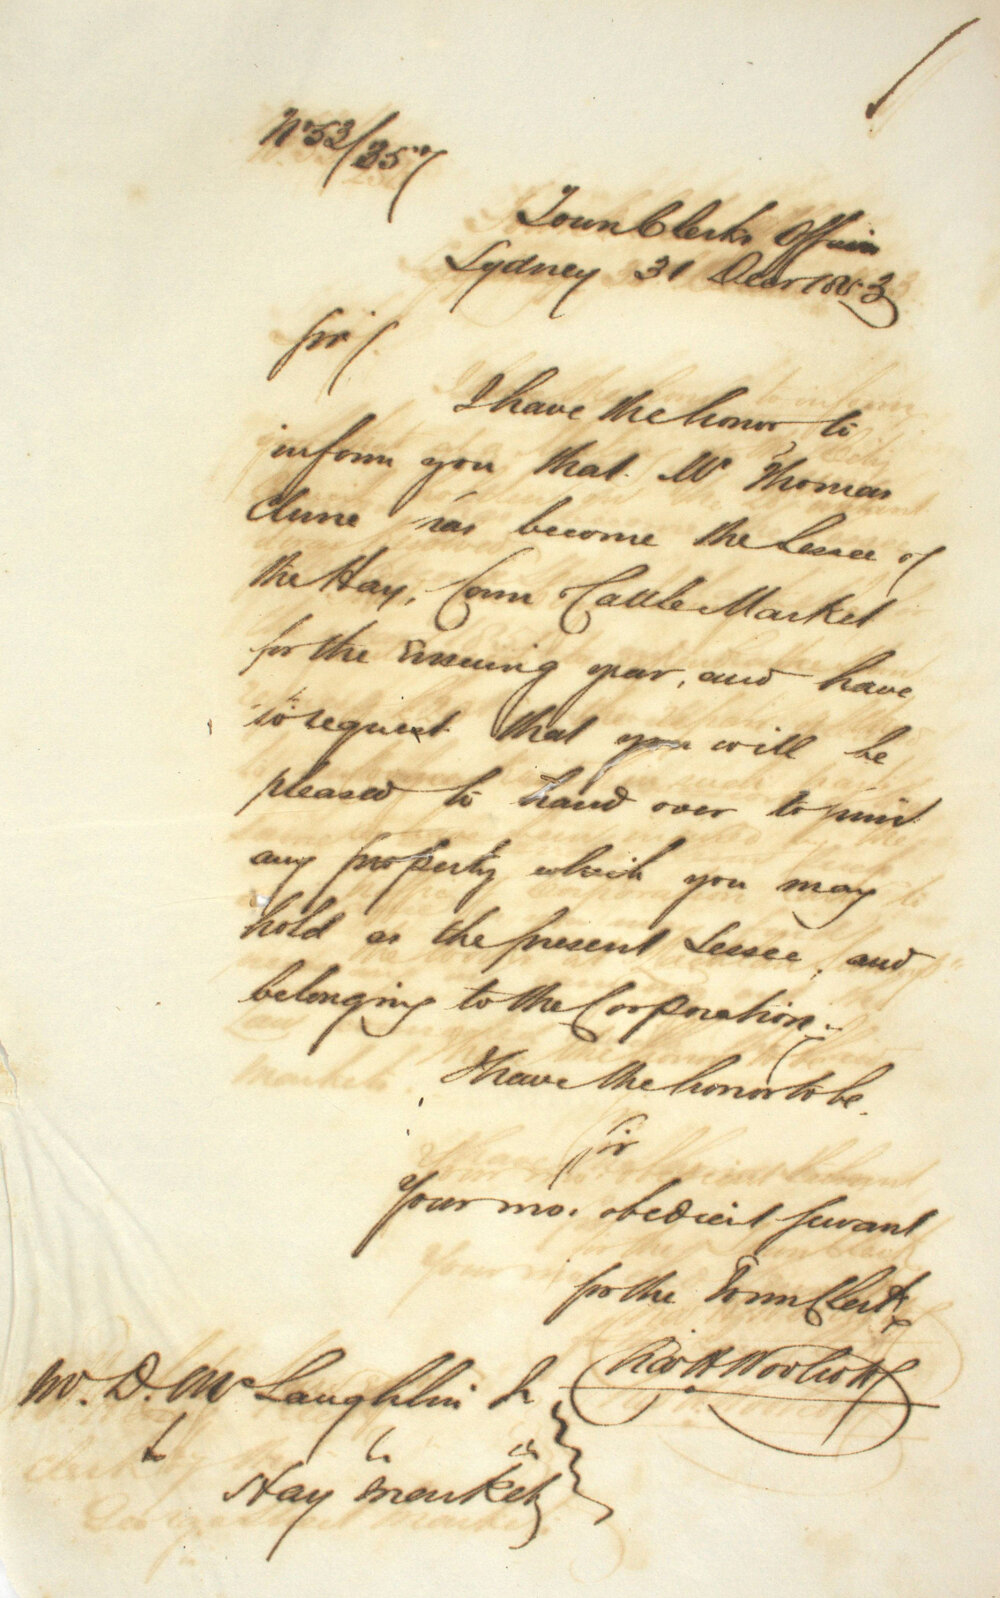 No 53/357
Town Clerks Office
Sydney 31 Decr 1853
Sir
I have the honor to
inform you that Mr Thomas
Clune has become the Lessee of
the Hay, Corn Cattle Market
for the Ensuing year, and have
to request that you will be
pleased to hand over to him
any property which you may
hold as the present Lessee, and
belonging to the Corporation.
I have the honor to be
Sir
Your mo. obedient Servant
for the Town Clerk
Woolcott
Mr. D. McLaughlin Jr
Hay Market